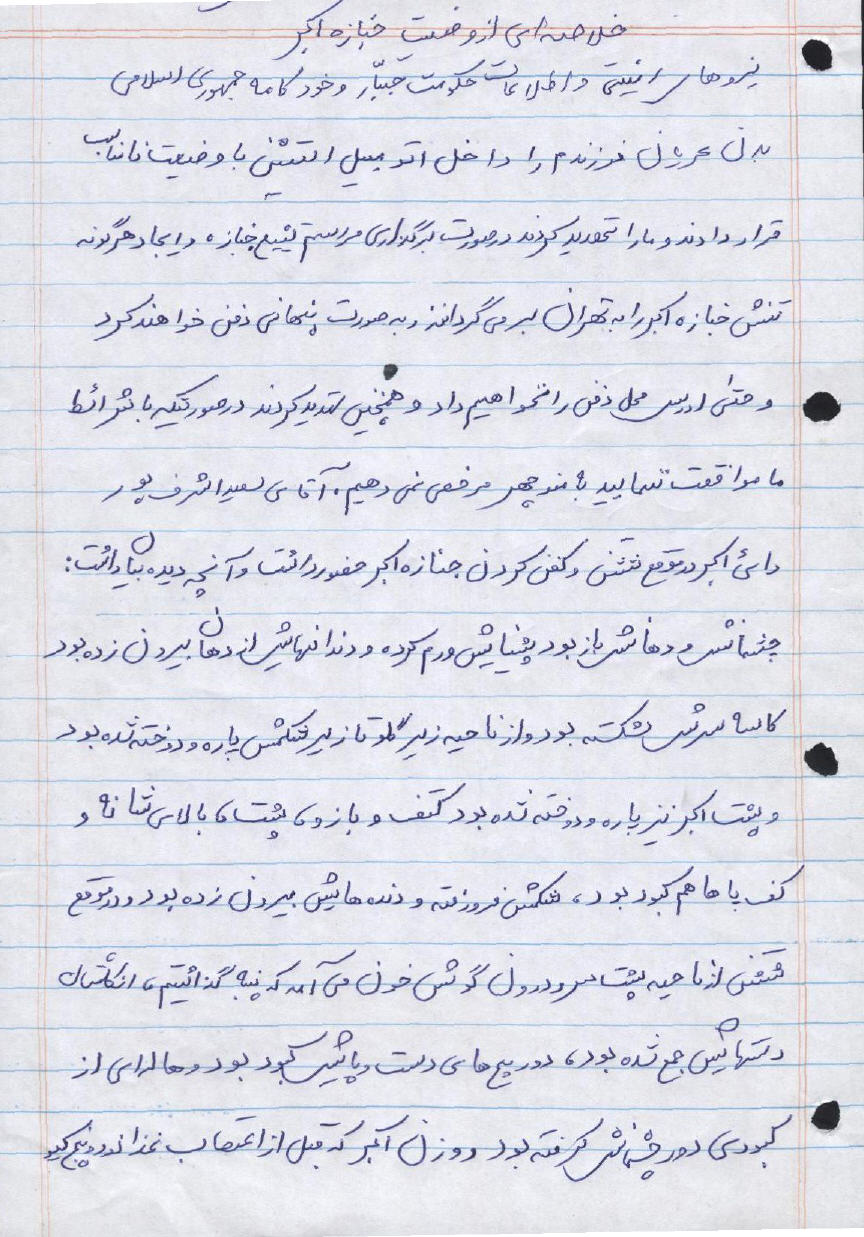 خلاصه‌ای از وضعیت جنازه اکبر
نیروهای امنیتی و اطلاعات حکومت جبّار و خودکامه جمهوری اسلامی
بدن عریان فرزندم را داخل اتومبیل استیشن با وضعیت نامناسب
قرار دادند و ما را تهدید کردند در صورت برگزاری مراسم تشییع جنازه و ایجاد هرگونه
تنش جنازه اکبر را به تهران برمی گردانند و به صورت پنهانی دفن خواهند کرد
و حتی آدرس محل دفن را نخواهیم داد و همچنین تهدید کردند در صورتیکه با شرائط
ما موافقت ننمایید به منوچهر مرخصی نمی دهیم، آقای سعید اشرف پور
دائی اکبر در موقع شستن و کفن کردن جنازه اکبر حضور داشت و آنچه دیده بیان داشت:
چشمانش و دهانش باز بود پیشانیش ورم کرده و دندانهایش از دهان بیرون زده بود
کاسه سرش شکسته بود و از ناحیه زیر گلو تا زیر شکمش پاره و دوخته شده بود
و پشت اکبر نیز پاره و دوخته شده بود کتف و بازو، پشت، بالای شانه و
کف پاها هم کبود بود، شکمش فرو رفته و دنده هایش بیرون زده بود و در موقع
شستن از ناحیه پشت سر و درون گوش خون می آمد که پنبه گذاشتیم، انگشتان
دستهایش جمع شده بود، دور مچ های دست و پایش کبود بود و هاله ای از
کبودی دور چشمانش گرفته بود و وزن اکبر که قبل از اعتصاب غذا نود و پنج کیلو